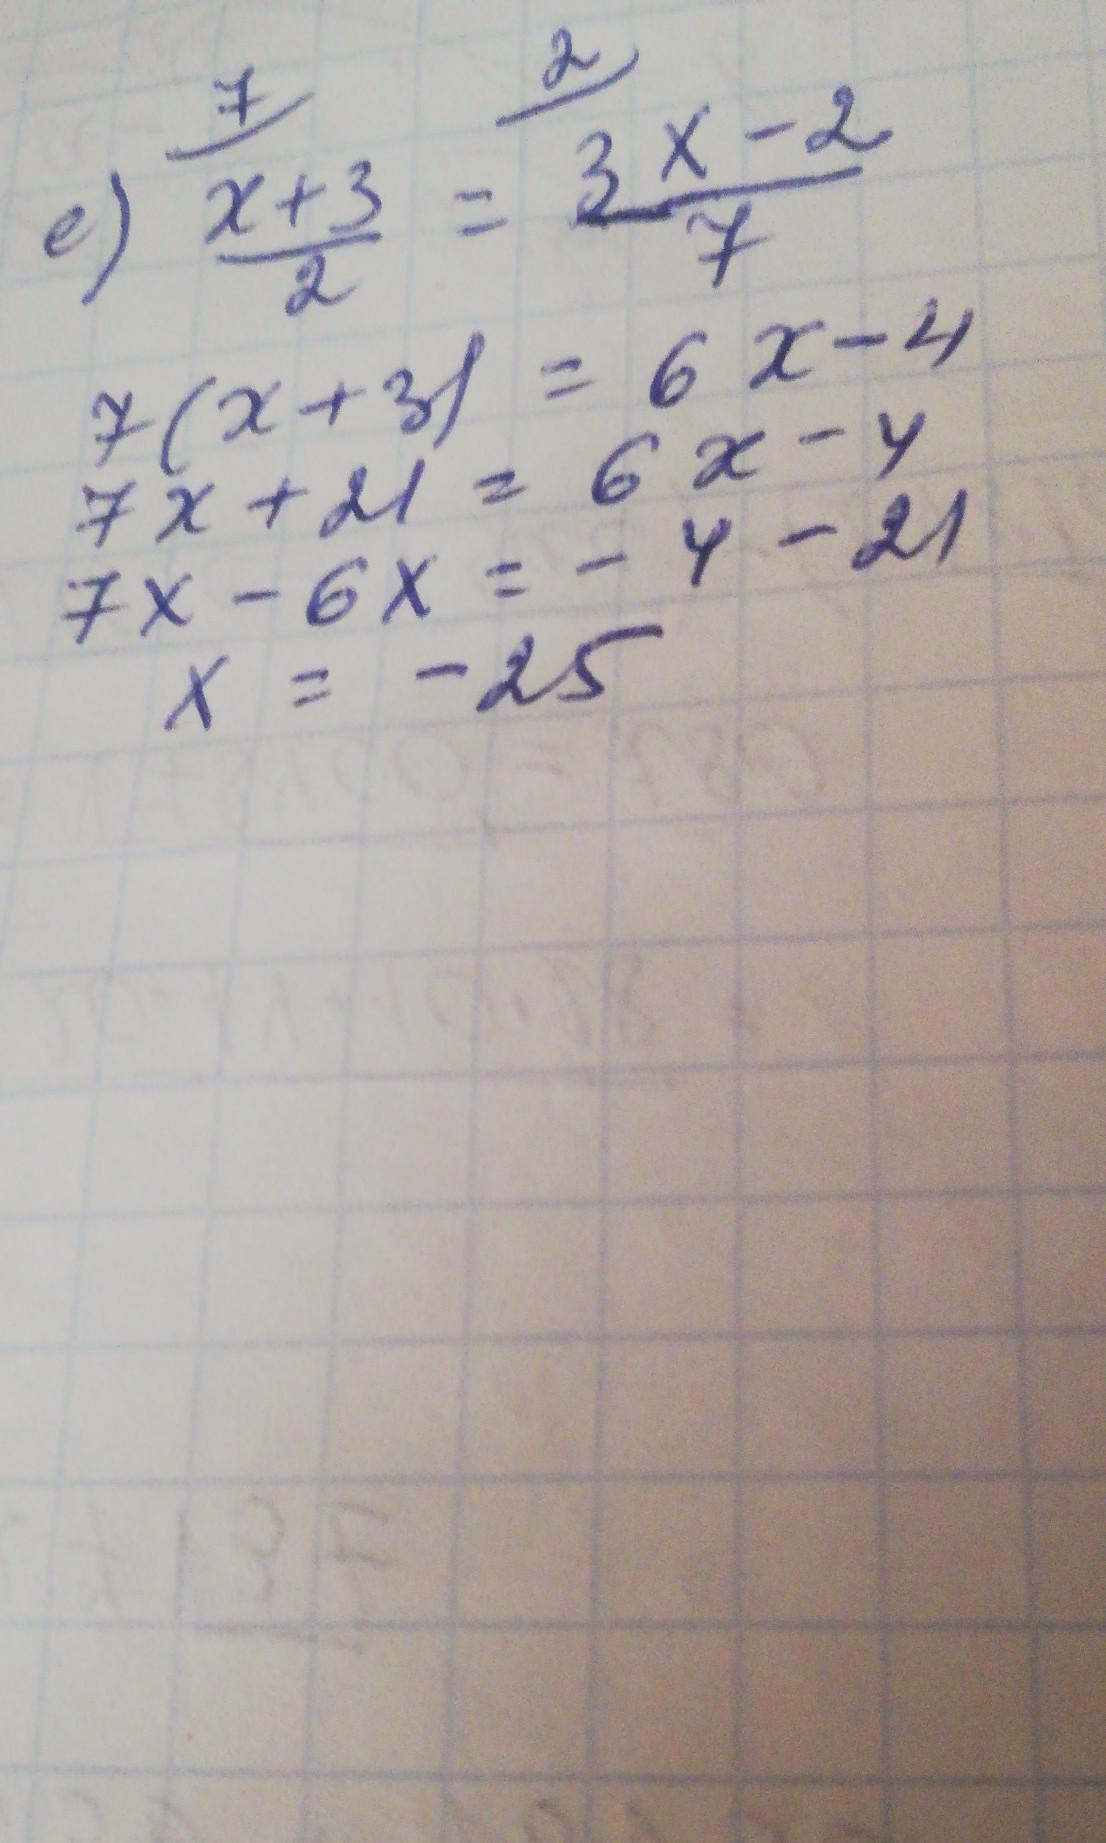 7 2
e) x+3/2 = 3x-2/7
7(x+3) = 6x-4
7x+21 = 6x-4
7x-6x = -4-21
x = -25